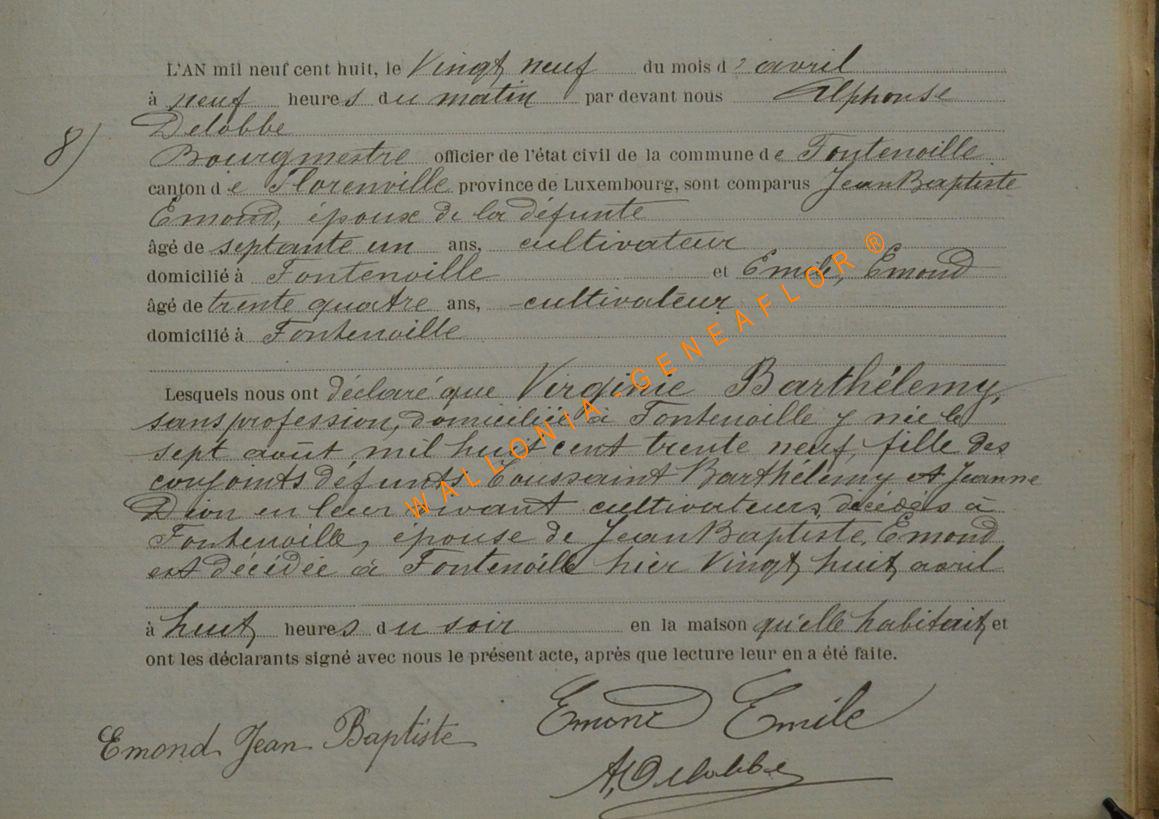 L'AN mil neuf cent huit, le Vingt neuf du mois d'avril
à neuf heures du matin par devant nous Alphonse
Delobbe
8) Bourgmestre officier de l'état civil de la commune de Fontenoille
canton de Florenville province de Luxembourg, sont comparus Jean Baptiste
Emond, époux de la défunte
âgé de septante un ans, cultivateur
domicilié à Fontenoille et Emile, Emond
âgé de trente quatre ans, cultivateur
domicilié à Fontenoille
Lesquels nous ont déclaré que Virginie Barthélemy,
sans profession, domiciliée à Fontenoille y née le
sept août mil huit cent trente neuf, fille des
conjoints défunts Toussaint Barthélemy et Jeanne
Dion en leur vivant cultivateurs décédés à
Fontenoille, épouse de Jean Baptiste Emond
est décédée à Fontenoille hier Vingt huit avril
à huit heures du soir en la maison qu'elle habitait et
ont les déclarants signé avec nous le présent acte, après que lecture leur en a été faite.
Emond Jean Baptiste Emond Emile
A. Delobbe
WALLONIA-GENEAFLOR®